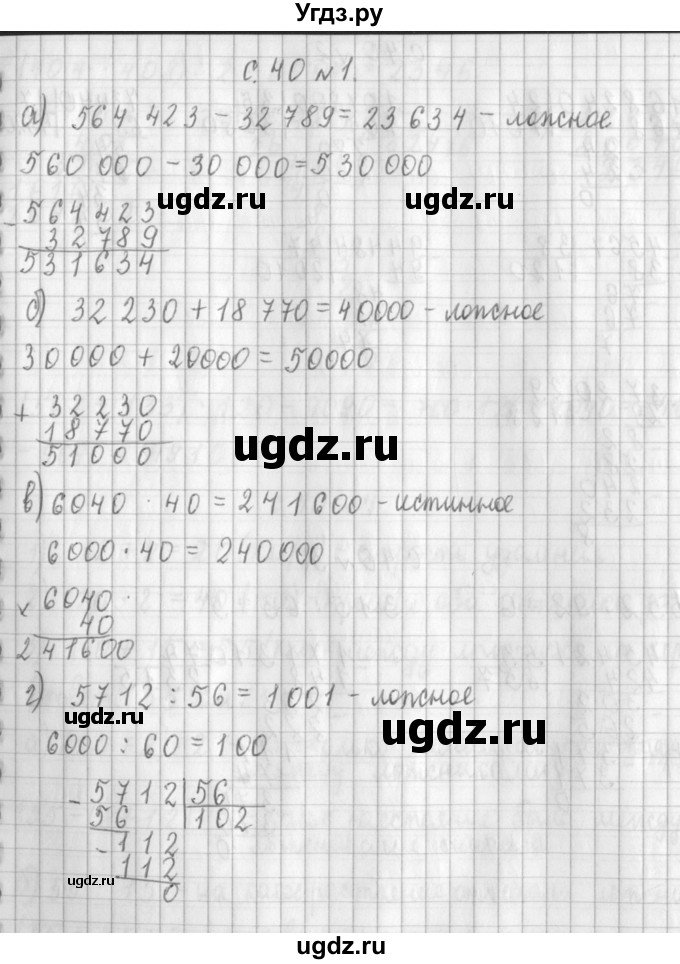 Угдз.ру
с. 40 №1.
а) 564 423 - 32 789 = 23 634 - ложное
560 000 - 30 000 = 530 000
ugdz.ru ugdz.ru
- 564423
32789
531634
б) 32 230 + 18 770 = 40000 - ложное
30000 + 20000 = 50000
+ 32230
18770
51000
ugdz.ru
в) 6040 · 40 = 241600 - истинное
6000 · 40 = 240000
× 6040
40
241600
г) 5712 : 56 = 1001 - ложное
ugdz.ru ugdz.ru
6000 : 60 = 100
- 5712 | 56
56 102
- 112
112
ugdz.ru
0
ugdz.ru